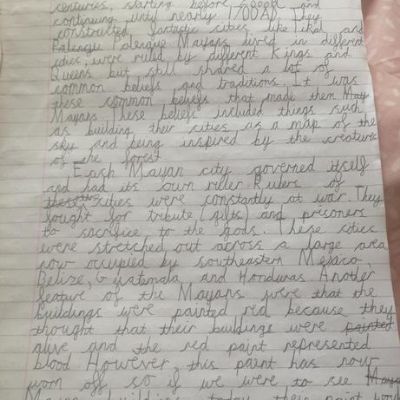 centuries, starting before
continuing until nearly 1700AD. They
constructed fantastic cities like Tikal and
Palenque Palenque Mayans lived in different
cities, were ruled by different Kings and
Queens but still shared a lot of
common beliefs and traditions. It was
these common beliefs that made them May
Mayans. These beliefs included things such
as building their cities as a map of the
sky and being inspired by the creatures
of the forest.
Each Mayan city governed itself
and had its own ruler. Rulers of
cities were constantly at war. They
fought for tribute (gifts) and prisoners
to sacrifice to the gods. These cities
were stretched out across a large area
now occupied by southeastern Mexico,
Belize, Guatemala and Honduras. Another
feature of the Mayans were that the
buildings were painted red because they
thought that their buildings were painted
alive and the red paint represented
blood. However, this paint has now
worn off so if we were to see Maya
Mayan buildings today their paint